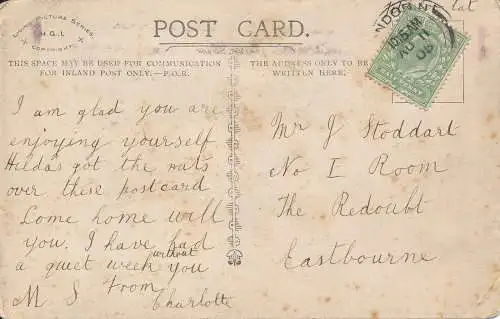 POST CARD.
THIS SPACE MAY BE USED FOR COMMUNICATION
FOR INLAND POST ONLY.—P.O.R.
THE ADDRESS ONLY TO BE
WRITTEN HERE.
PICTURE SERIES
COPYRIGHT
LONDON N
10.15 AM
AU 11
06
lat
I am glad you are
enjoying yourself
Hilda's got the rats
over these postcard
Come home will
you. I have had
a quiet week without you
M S From
Charlotte
Mr J Stoddart
No I Room
The Redoubt
Eastbourne